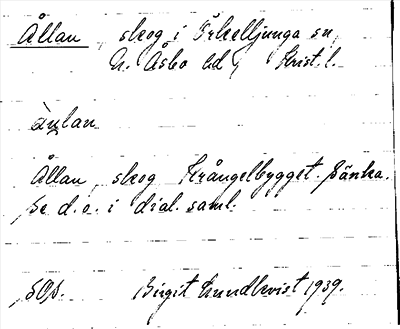 Ållan, skog i Örkelljunga sn,
N. Åsbo hd, Krist. l.
àulan
Ållan, skog Krångelbygget. Sänka.
Se d. o. i dial. saml.
SOS. Birgit Lundkvist 1939.